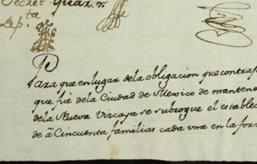 Secret.
pta
P
Para que en lugar de la obligacion que contrajo
que fué de la Ciudad de Mexico de mantene
de la Nueva Vizcaya se subrogue el estable
de à Cincuenta familias cada una en la for